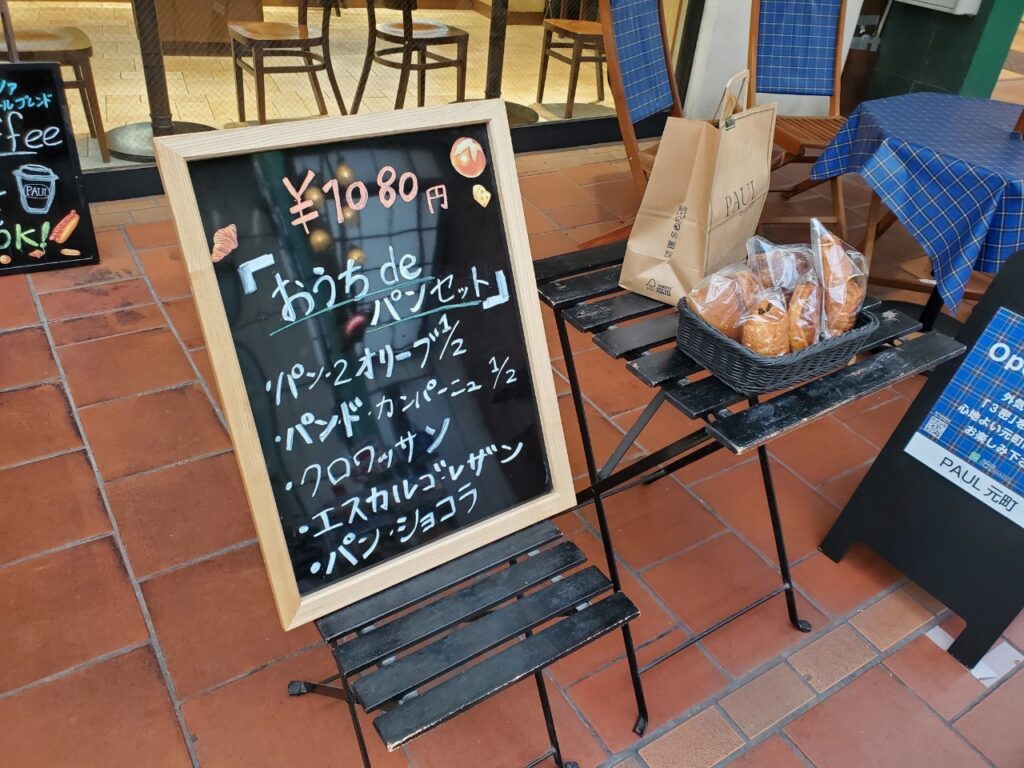 ルブレンド
ffee
PAUL
OK!
¥1080円
『おうち de
パンセット』
・パン・2オリーブ 1/2
・パンド・カンパーニュ 1/2
・クロワッサン
・エスカルゴ・レザン
・パン・ショコラ
PAUL
Ope
外気
「3密」を
心地よい元町
お楽しみ下さ
PAUL 元町